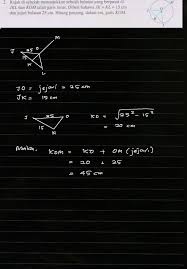 2. Rajah di sebelah menunjukkan sebuah bulatan yang berpusat O.
JKL dan KOM ialah garis lurus. Diberi bahawa JK = KL = 15 cm
dan jejari bulatan 25 cm. Hitung panjang, dalam cm, garis KOM.
M
J 25 O
K
L
JO = jejari = 25 cm
JK = 15 cm
J 25 O
15
K
KO = √25² - 15²
= 20 cm
Maka, KOM = KO + OM (jejari)
= 20 + 25
= 45 cm